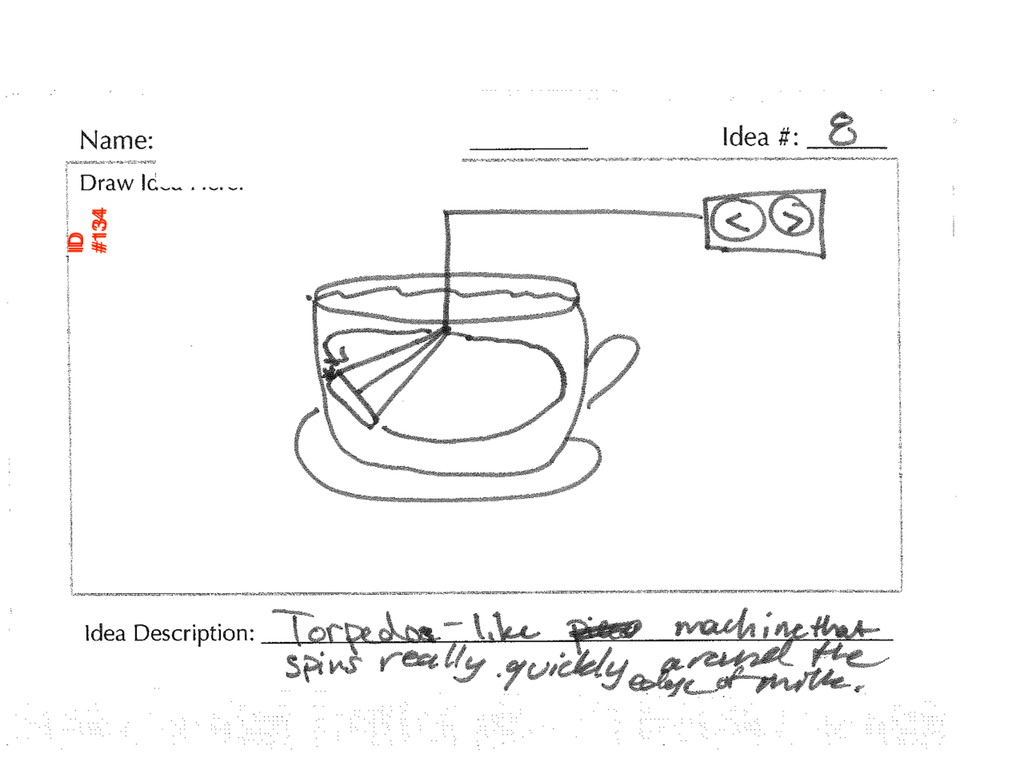 Name:
Idea #: 8
Draw Idea Here:
ID
#134
< >
Idea Description: Torpedo-like machine that
spins really quickly around the
edge of milk.